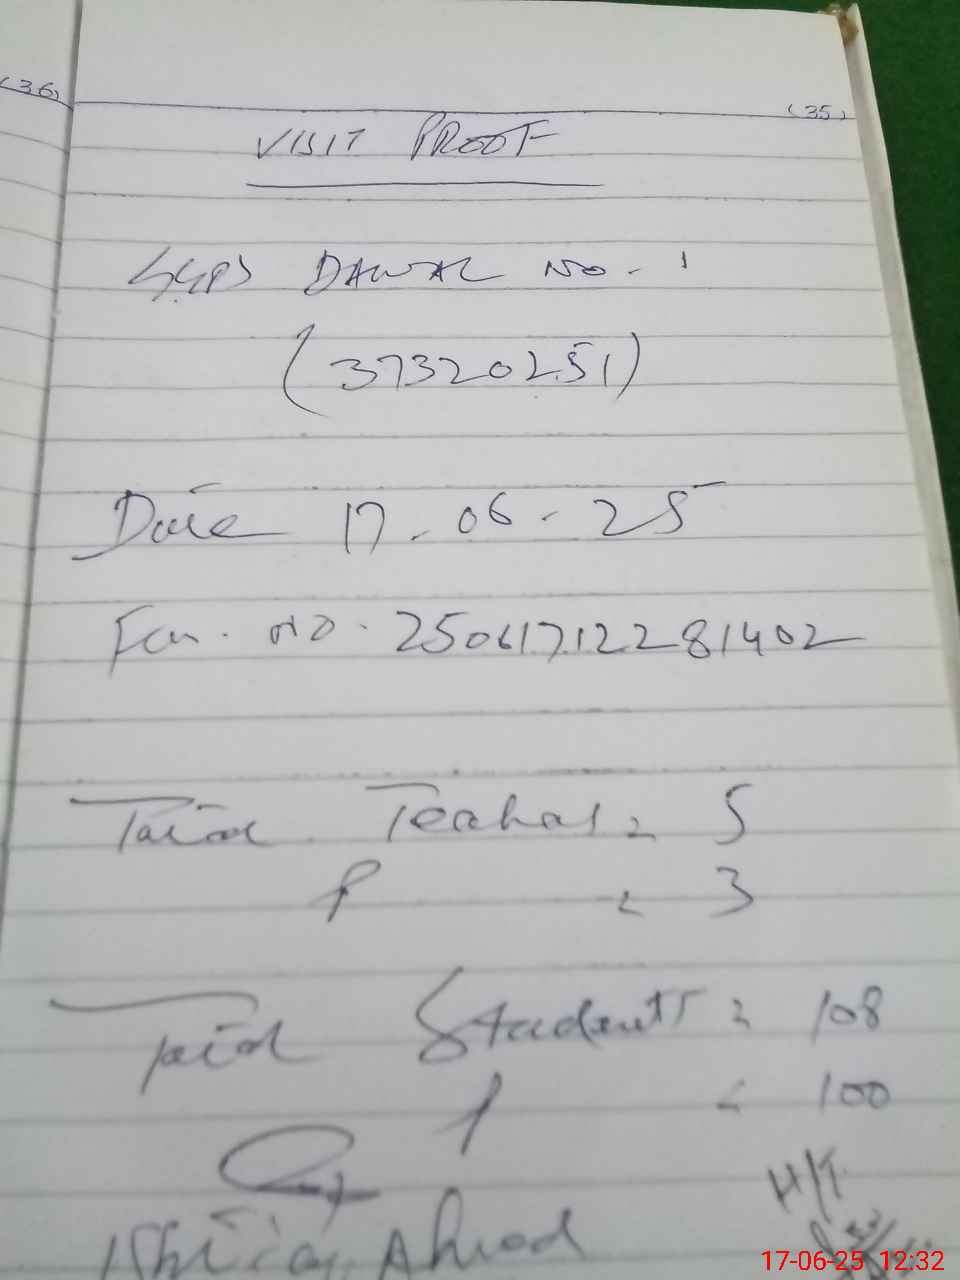 (36)
(35)
VISIT PROOF
GGPS DAWAL NO. 1
(37320251)
Date 17.06.25
Fcn. NO. 250617122281402
Total Teachers = 5
P = 3
Total Students = 108
P = 100
H/T
Ahmad
17-06-25 12:32